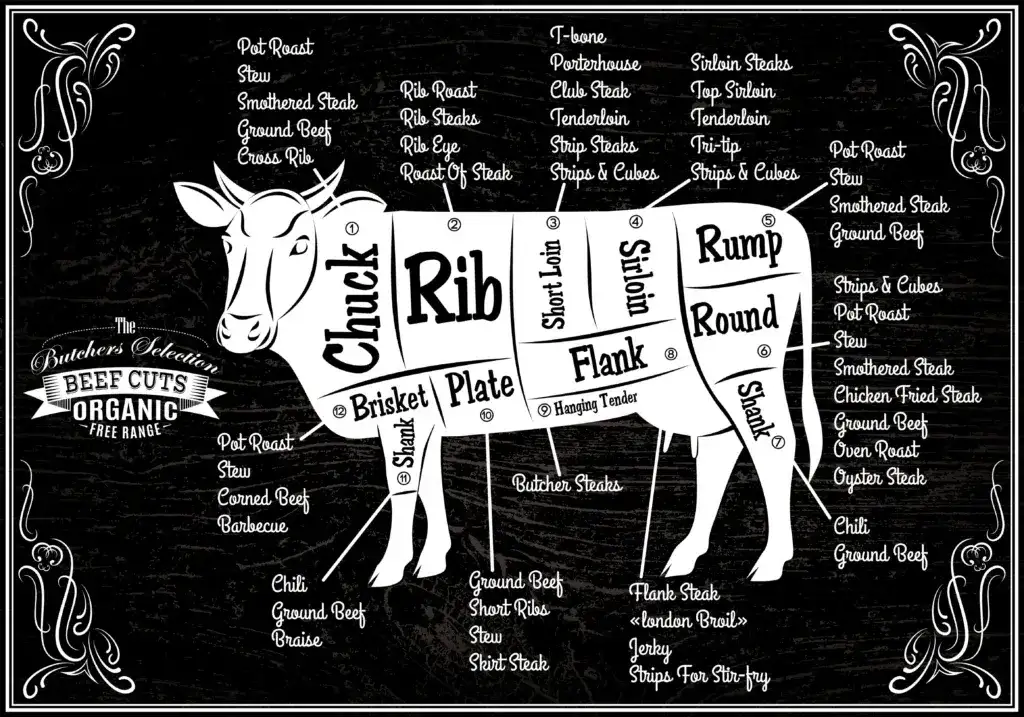 Pot Roast
Stew
Smothered Steak
Ground Beef
Cross Rib
Rib Roast
Rib Steaks
Rib Eye
Roast Of Steak
T-bone
Porterhouse
Club Steak
Tenderloin
Strip Steaks
Strips & Cubes
Sirloin Steaks
Top Sirloin
Tenderloin
Tri-tip
Strips & Cubes
Pot Roast
Stew
Smothered Steak
Ground Beef
Strips & Cubes
Pot Roast
Stew
Smothered Steak
Chicken Fried Steak
Ground Beef
Oven Roast
Oyster Steak
Chili
Ground Beef
① Chuck
② Rib
③ Short Loin
④ Sirloin
⑤ Rump
Round ⑥
Shank ⑦
Flank ⑧
⑨ Hanging Tender
Plate ⑩
Shank ⑪
⑫ Brisket
The
Butchers Selection
BEEF CUTS
ORGANIC
FREE RANGE
Pot Roast
Stew
Corned Beef
Barbecue
Chili
Ground Beef
Braise
Ground Beef
Short Ribs
Stew
Skirt Steak
Butcher Steaks
Flank Steak
«london Broil»
Jerky
Strips For Stir-fry